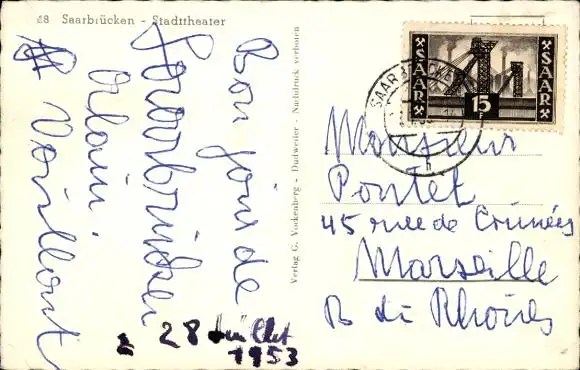 68 Saarbrücken - Stadttheater
Bon jour de
Saarbrücken
Alain
28 Juillet
1953
Verlag G. Vockenberg - Dudweiler - Nachdruck verboten
SAAR
SAAR
15
F
SAARBRÜCKEN
h
Monsieur
Pontet
45 rue de
Marseille
B du Rhônes